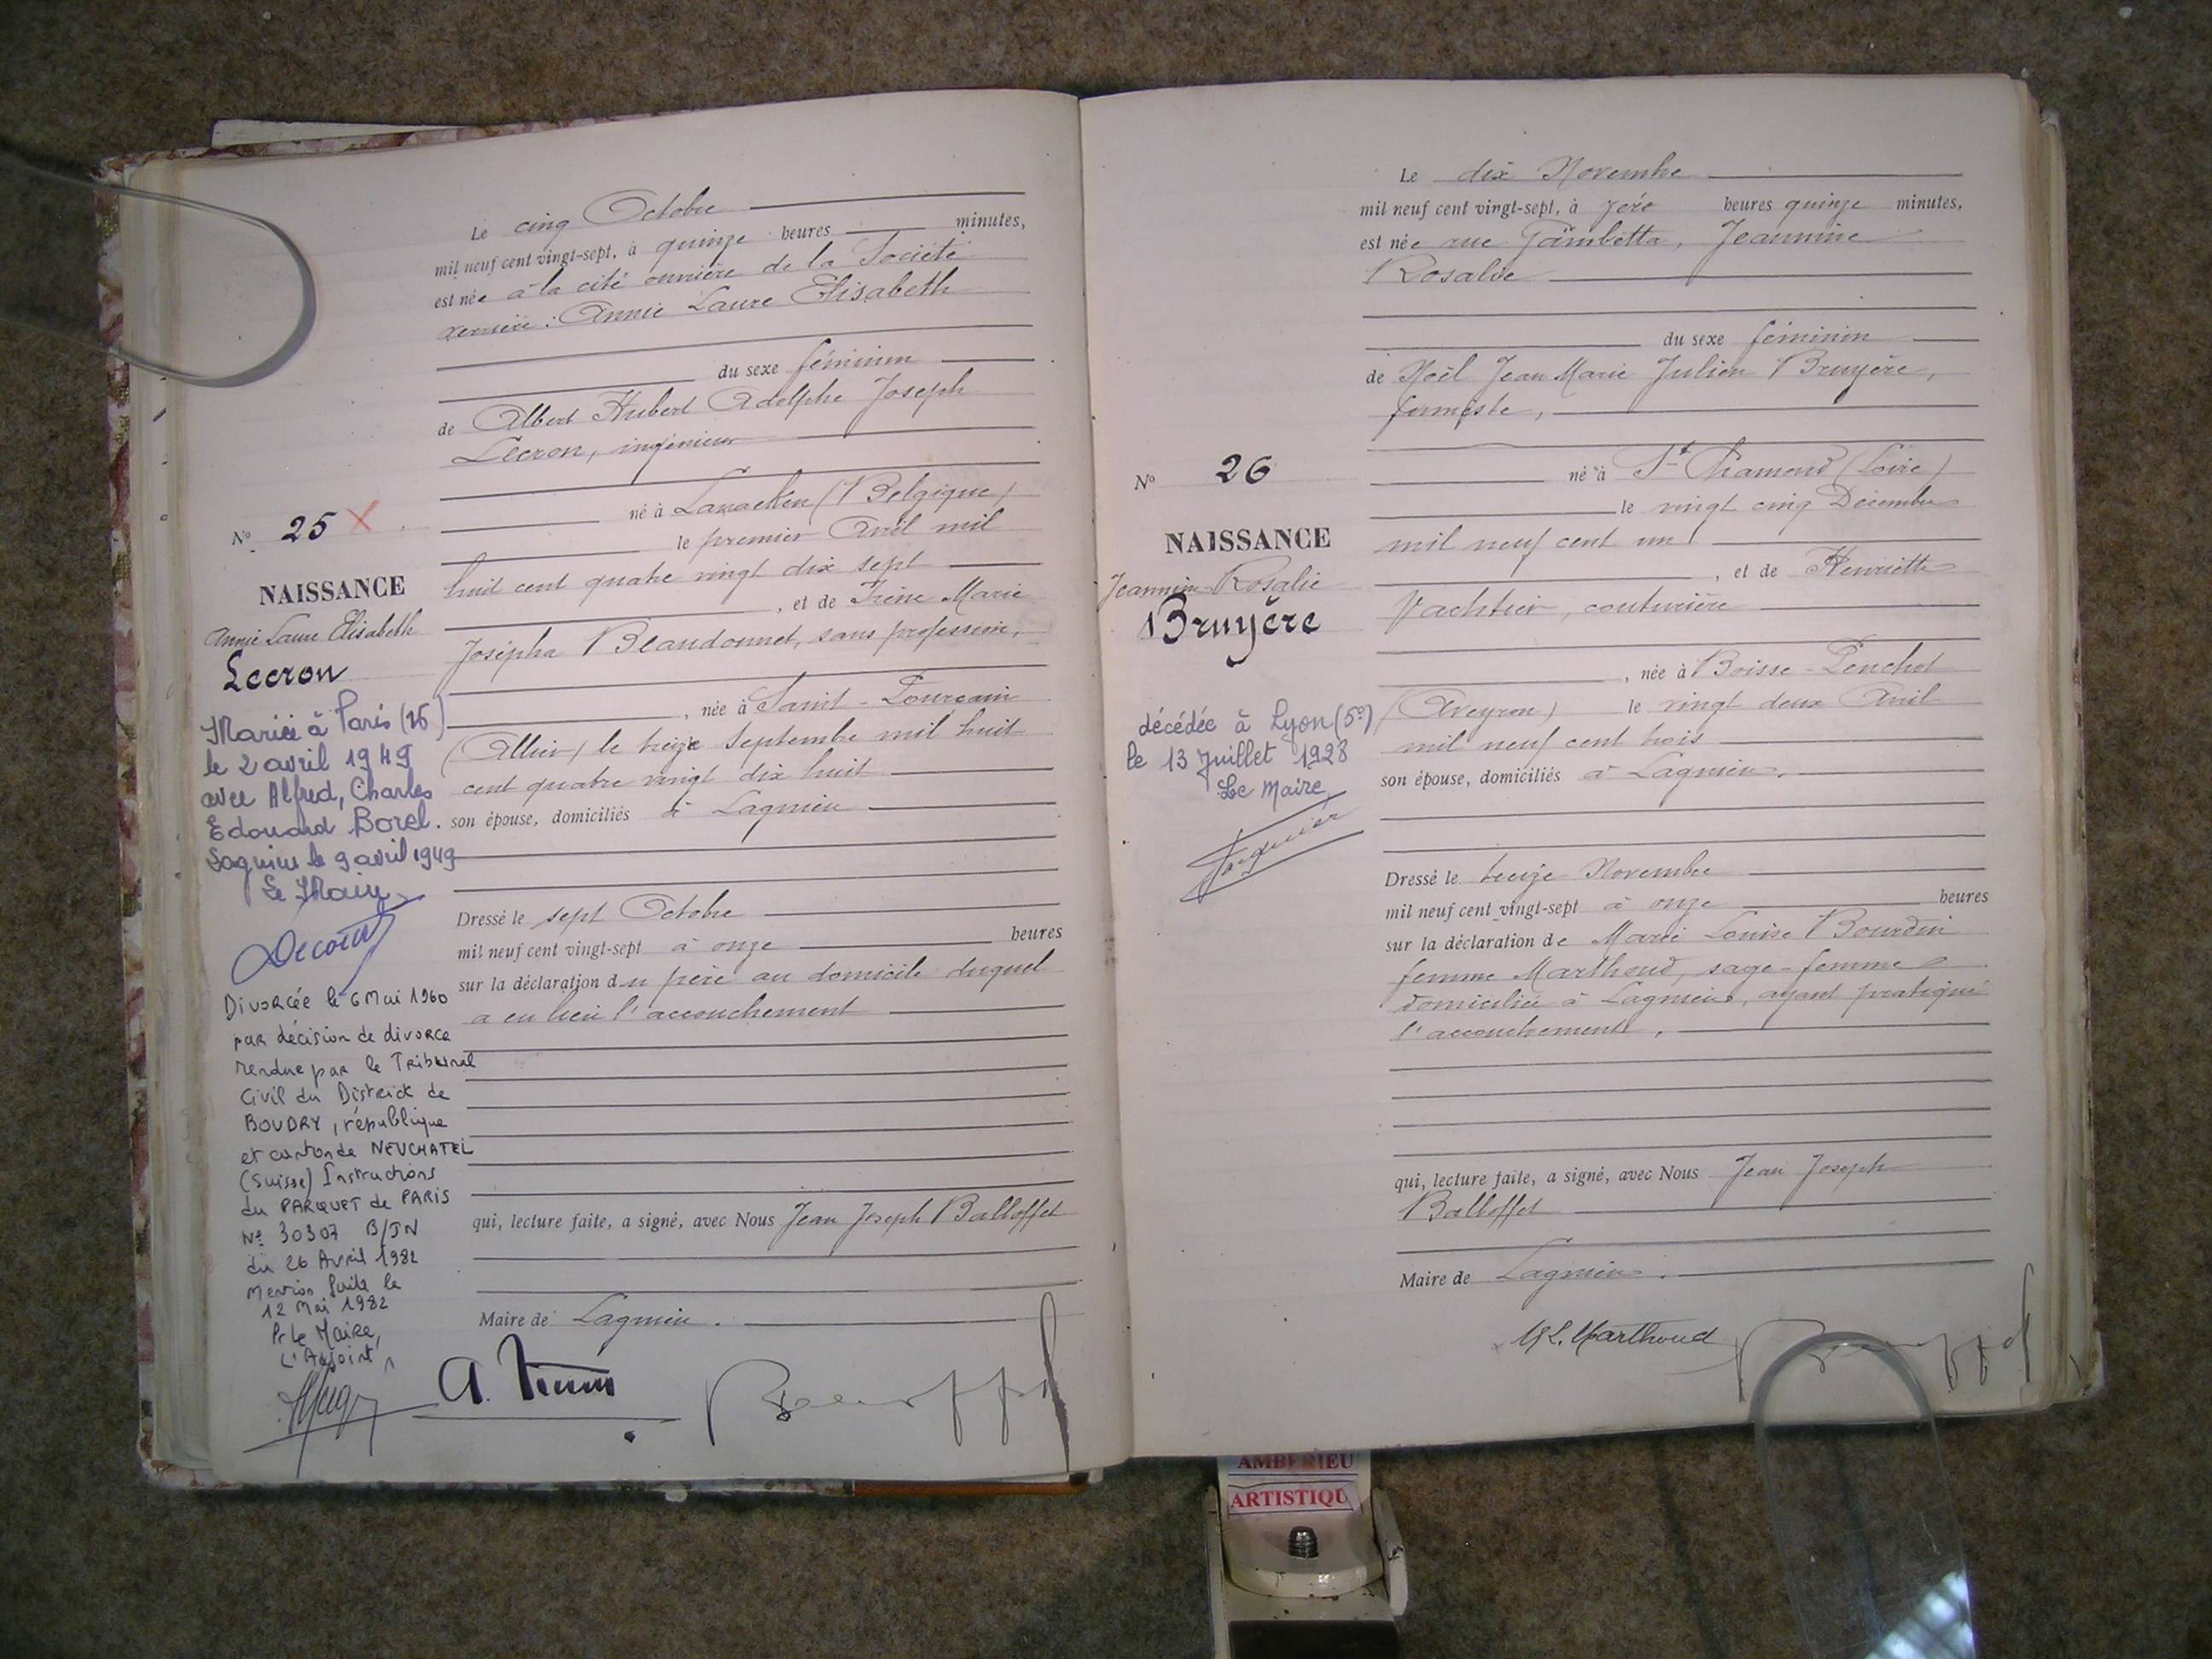 Le cinq Octobre
mil neuf cent vingt-sept, à quinze heures minutes,
est née à la cité ouvrière de la Société
verrière : Annie Laure Elisabeth
du sexe féminin
de Albert Hubert Adolphe Joseph
Lecron, ingénieur
né à Lanaeken (Belgique)
le premier Avril mil
huit cent quatre vingt dix sept
, et de Irène Marie
Josépha Beaudonnet, sans profession,
, née à Saint-Pourcain
(Allier) le treize Septembre mil huit
cent quatre vingt dix huit
son épouse, domiciliés à Lagnieu
Dressé le sept Octobre
mil neuf cent vingt-sept à onze heures
sur la déclaration du père au domicile duquel
a eu lieu l'accouchement
qui, lecture faite, a signé, avec Nous Jean Joseph Balloffet
Maire de Lagnieu.
Nº 25 X
NAISSANCE
Annie Laure Elisabeth
Lecron
Mariée à Paris (16)
le 2 avril 1949
avec Alfred, Charles
Edouard Borel.
Lagnieu le 9 avril 1949
Le Maire
Divorcée le 6 Mai 1960
par décision de divorce
rendue par le Tribunal
Civil du District de
BOUDRY, république
et canton de NEUCHATEL
(Suisse) Instructions
du PARQUET de PARIS
Nº 30307 B/JN
du 26 Avril 1982
Mention faite le
12 Mai 1982
Pr Le Maire,
L'Adjoint,
Le dix Novembre
mil neuf cent vingt-sept, à zéro heures quinze minutes,
est née rue Gambetta, Jeannine
Rosalie
du sexe féminin
de Noël Jean Marie Julien Bruyère,
formiste,
né à St Chamond (Loire)
le vingt cinq Décembre
mil neuf cent un
, et de Henriette
Vachtier, couturière
, née à Boisse-Penchot
(Aveyron) le vingt deux Avril
mil neuf cent trois
son épouse, domiciliés à Lagnieu.
Dressé le treize Novembre
mil neuf cent vingt-sept à onze heures
sur la déclaration de Marie Louise Bourdin
femme Marthoud, sage-femme
domiciliée à Lagnieu, ayant pratiqué
l'accouchement,
qui, lecture faite, a signé, avec Nous Jean Joseph
Balloffet
Maire de Lagnieu.
M L. Marthoud
Nº 26
NAISSANCE
Jeannine Rosalie
Bruyère
décédée à Lyon (5e)
le 13 Juillet 1928
Le Maire,
AMBERIEU
ARTISTIQU